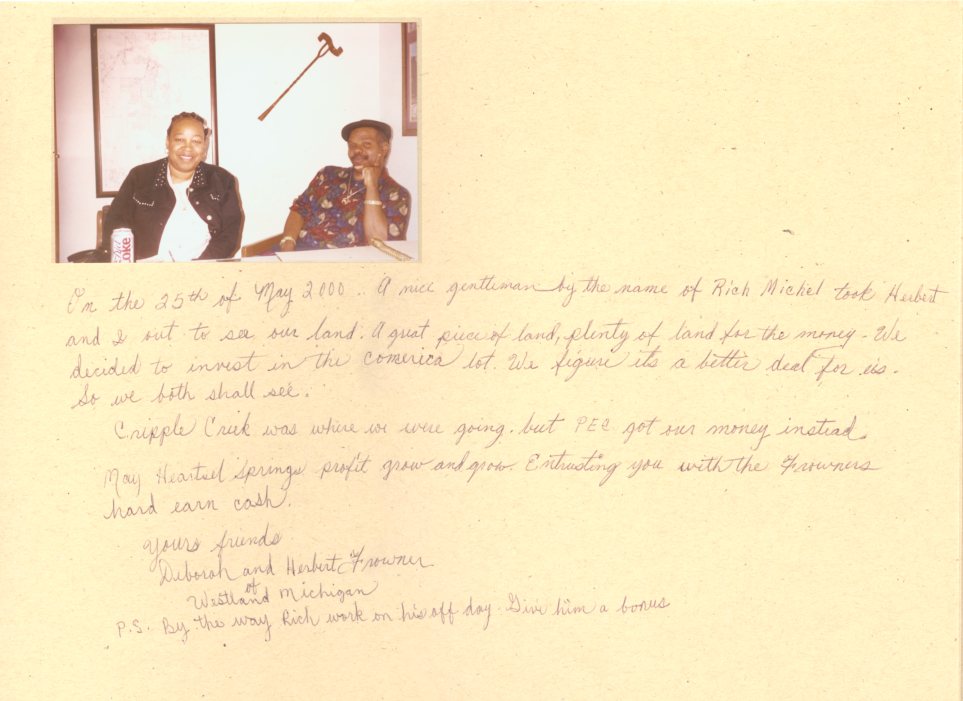 Diet
Coke
On the 25th of May 2000 .. A nice gentleman by the name of Rich Michel took Herbert
and I out to see our land. A great piece of land, plenty of land for the money - We
decided to invest in the comerica lot. We figure its a better deal for us.
So we both shall see.
Cripple Crick was where we were going. but PEC got our money instead
May Heartsel Springs profit grow and grow. Entrusting you with the Frowners
hard earn cash.
Yours friends
Deborah and Herbert Frowner
of
Westland Michigan
P.S. By the way Rich work on his off day. Give him a bonus